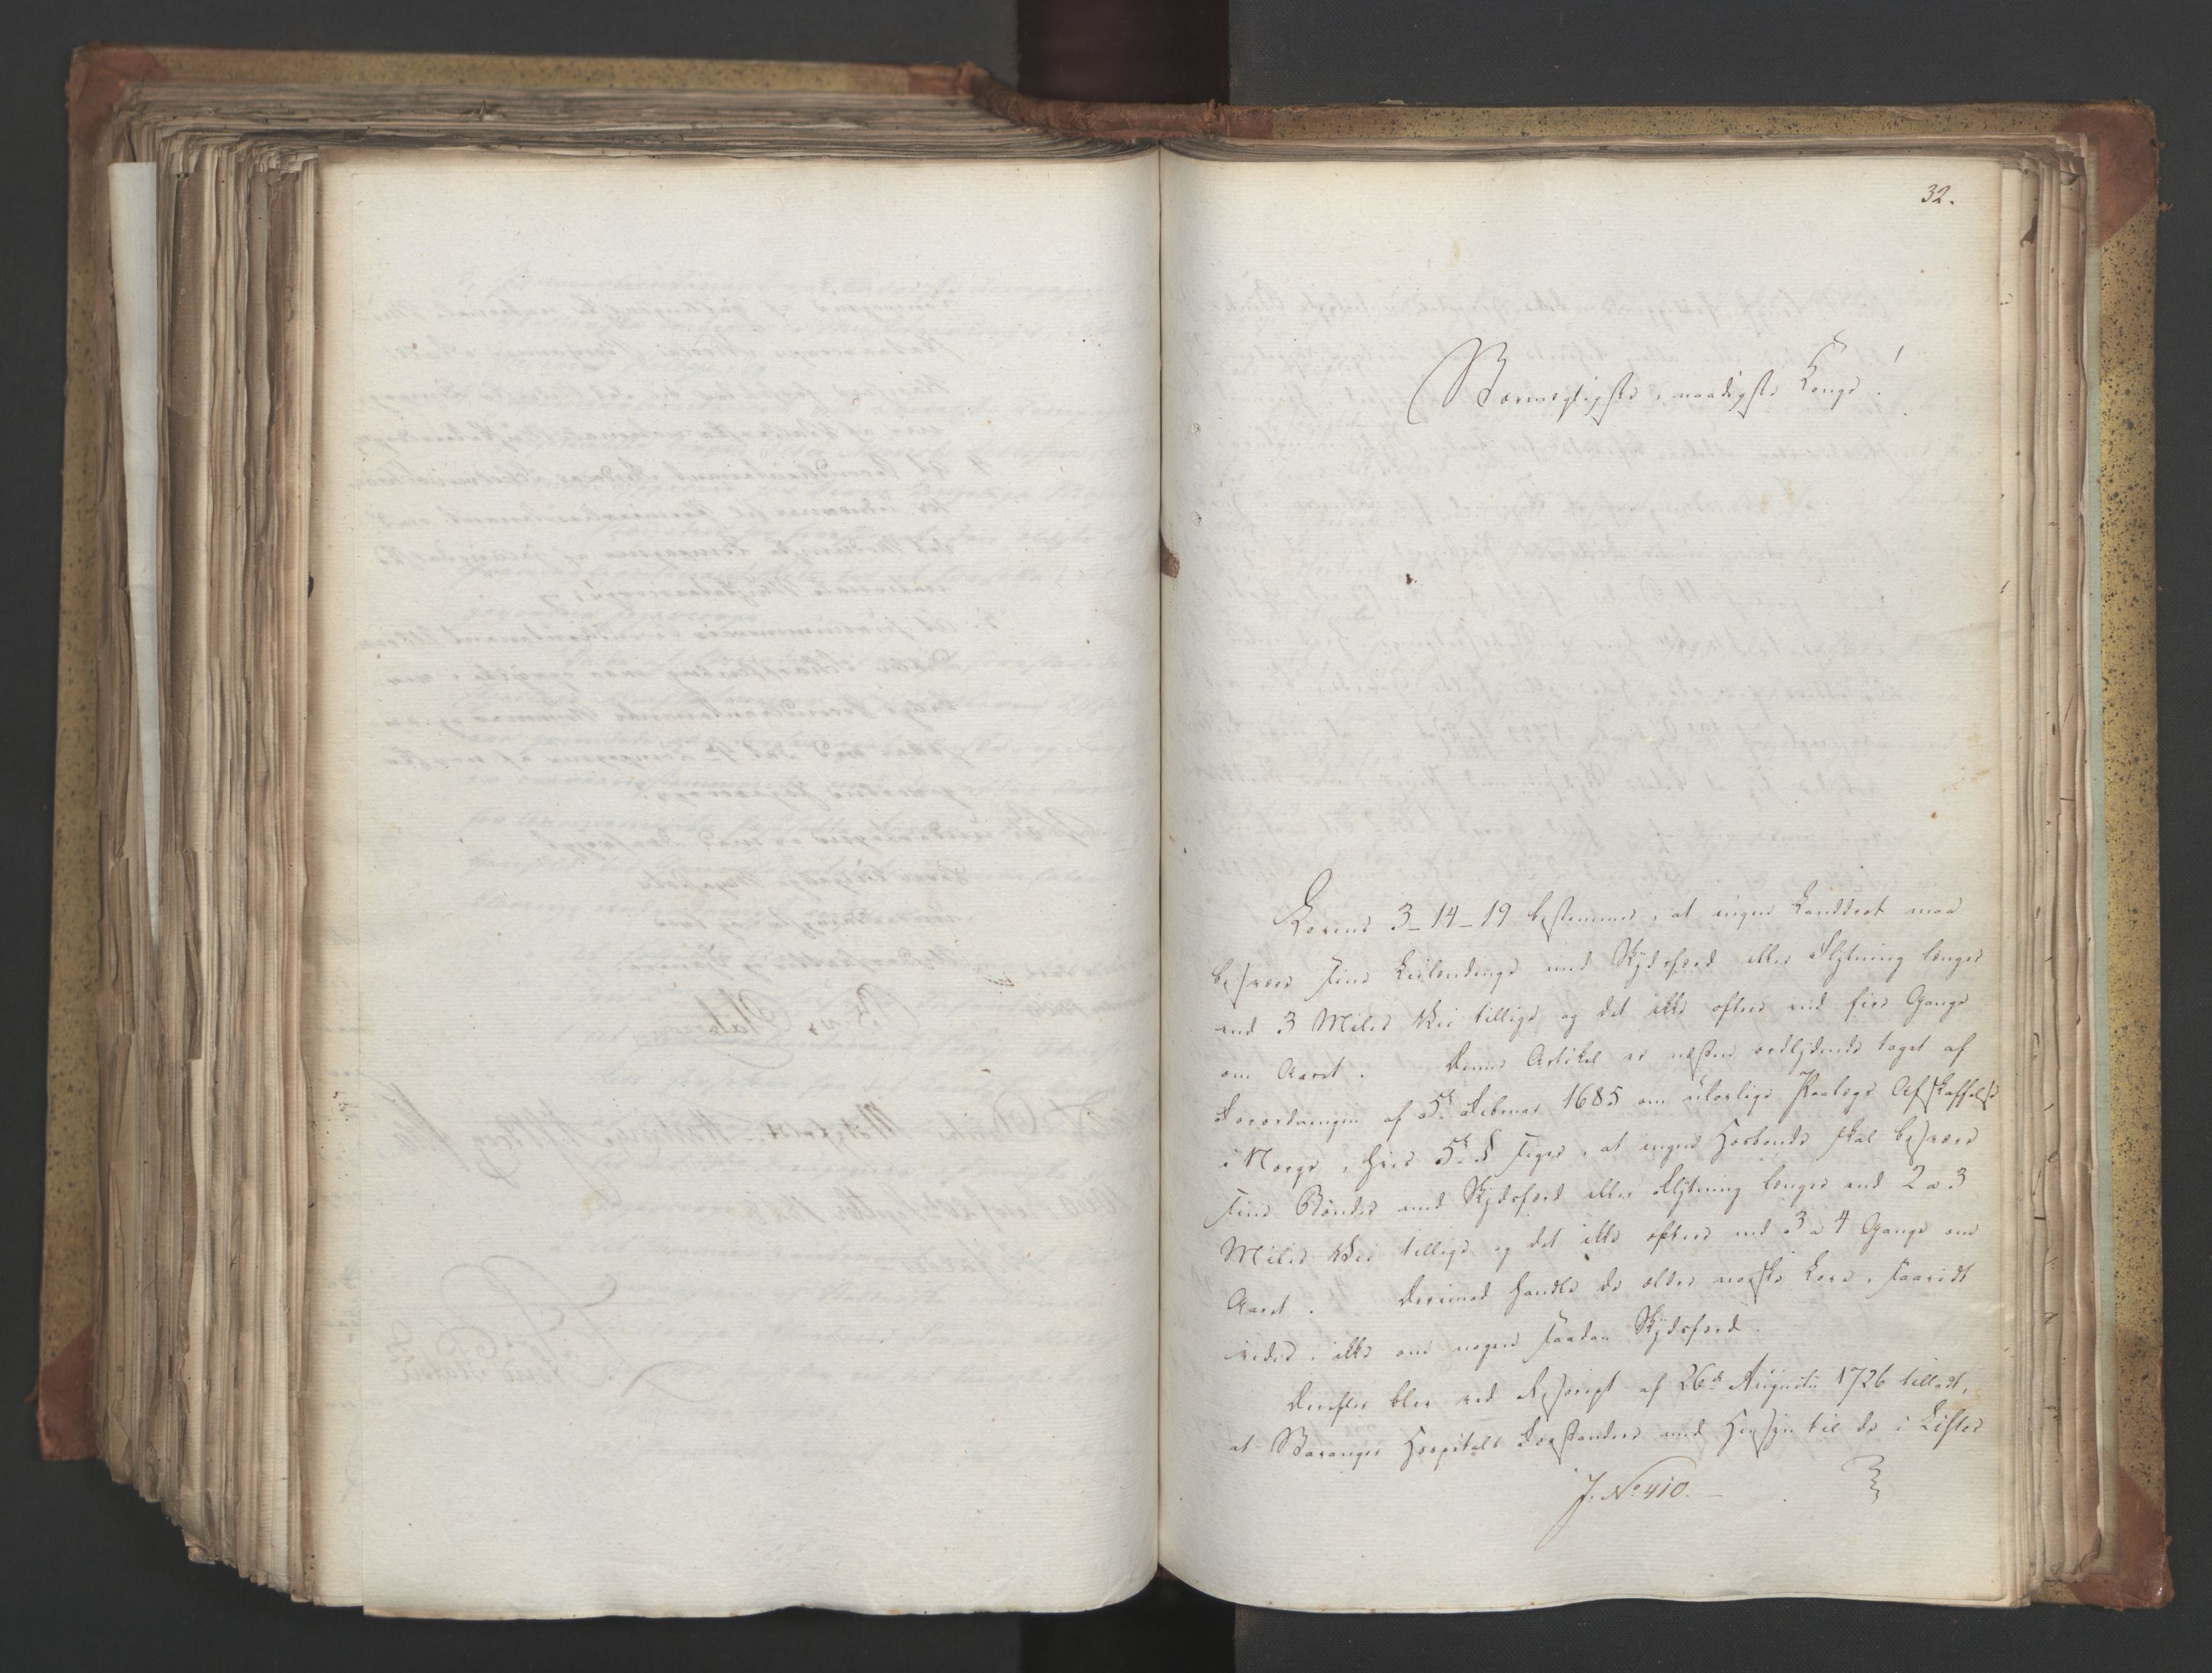 32.
Stormægtigste, naadigste Konge!
Lovens 3-14-19 bestemmer, at ingen Landdrot maa
besvære sine Leilendinge med Skydsferd eller Flytning længer
end 3 Miles Vei tillige og det ikke oftere end fire Gange
om Aaret. Denne Artikel er næsten ordlydende taget af
Forordningen af 5te Februar 1685 om ulovlige Paalægs Afskaffelse
i Norge, hvis 5te § siger, at ingen Hosbonde skal besvære
sine Bønder med Skydsferd eller Flytning længer end 2 a 3
Miles Vei tillige og det ikke oftere end 3 a 4 Gange om
Aaret. Derimod handle de ældre norske Love, saavidt
vides, ikke om nogen saadan Skydsferd.
Derefter blev ved Rescript af 26de Augusti 1726 tilladt,
at Stavanger Hospitals Forstandere med Hensyn til de i Lister
J. No 410.